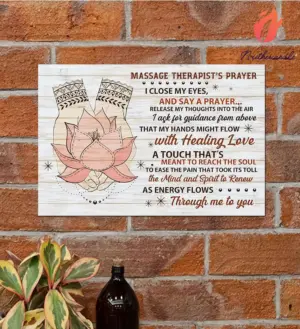 MASSAGE THERAPIST'S PRAYER
I CLOSE MY EYES,
AND SAY A PRAYER...
RELEASE MY THOUGHTS INTO THE AIR
I ask for guidance from above
THAT MY HANDS MIGHT FLOW
with Healing Love
A TOUCH THAT'S
MEANT TO REACH THE SOUL
TO EASE THE PAIN THAT TOOK ITS TOLL
the Mind and Spirit to Renew
AS ENERGY FLOWS
Through me to you